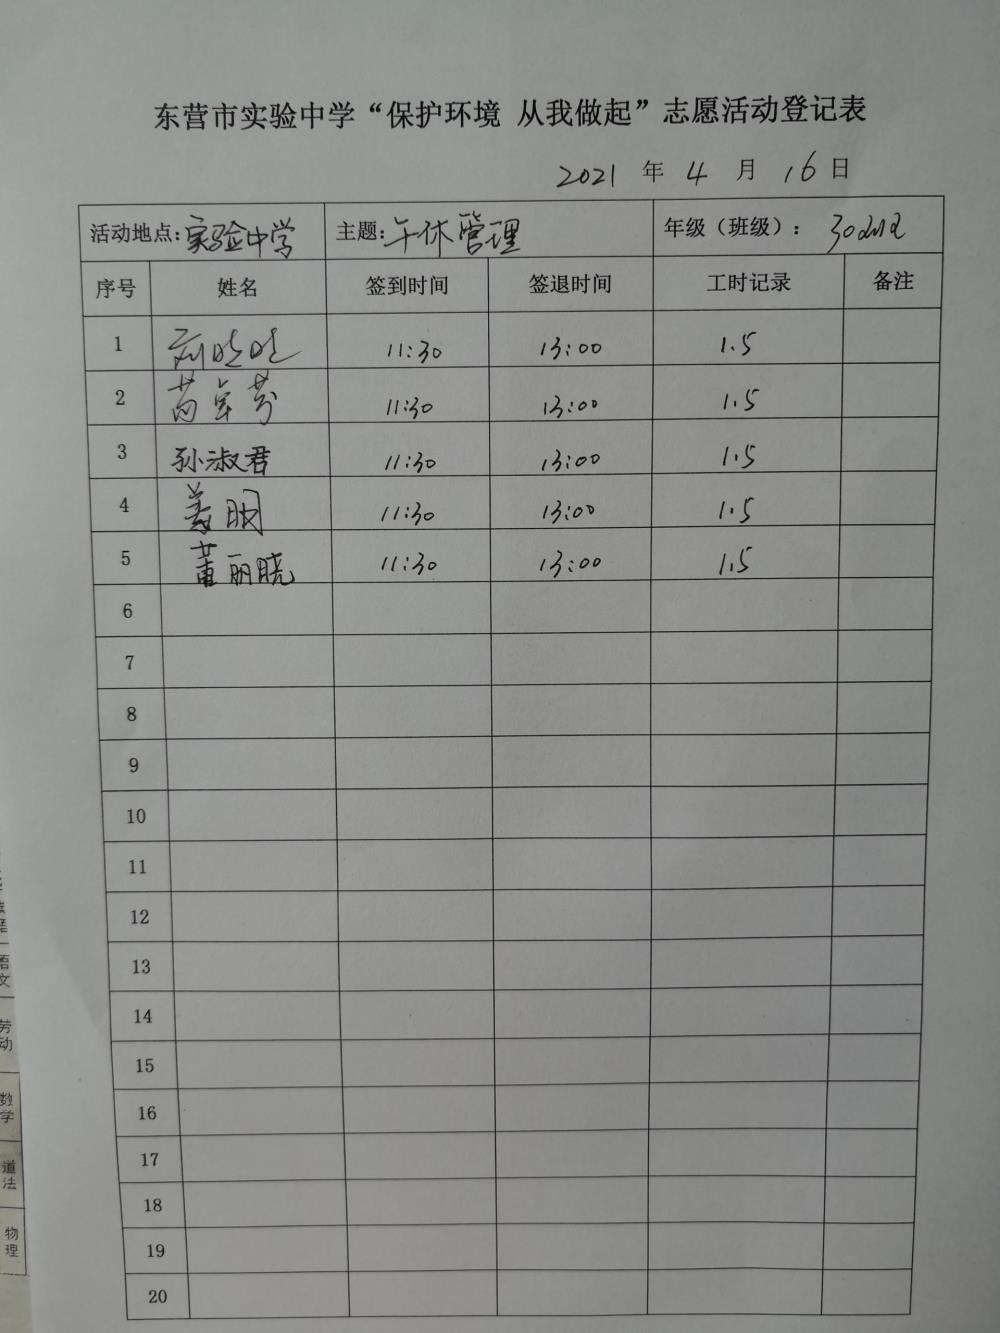 东营市实验中学“保护环境 从我做起”志愿活动登记表
2021 年 4 月 16 日
活动地点: 实验中学 主题: 午休管理 年级（班级）:
序号 姓名 签到时间 签退时间 工时记录 备注
1 11:30 13:00 1.5
2 11:30 13:00 1.5
3 孙淑君 11:30 13:00 1.5
4 姜明 11:30 13:00 1.5
5 董丽晓 11:30 13:00 1.5
6
7
8
9
10
11
12
13
14
15
16
17
18
19
20
语文
劳动
数学
道法
物理